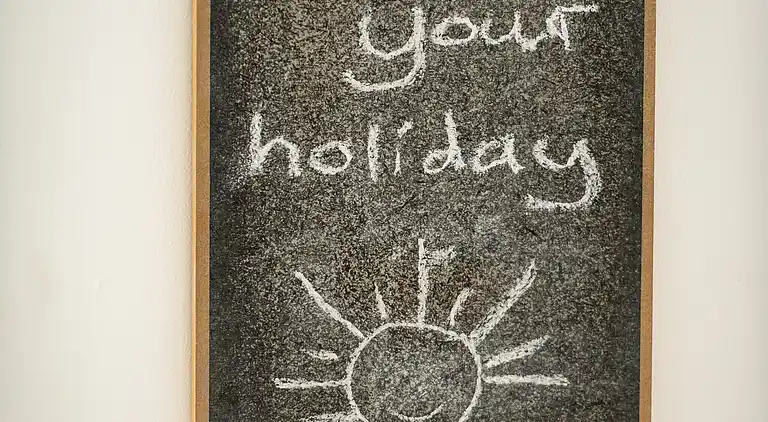 your
holiday